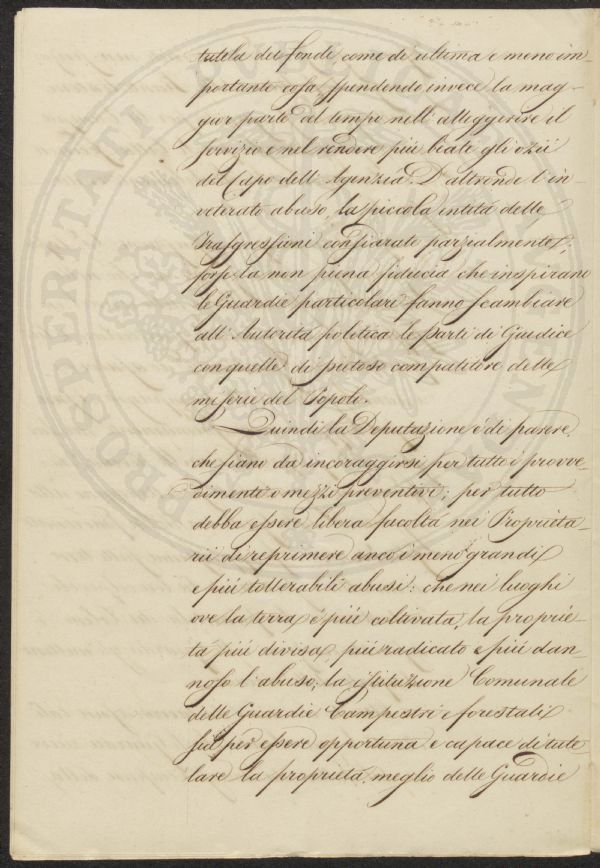 tutela dei fondi, come di ultima e meno im-
portante cosa, spendendo invece la mag-
gior parte del tempo nell'alleggerire il
servizio e nel rendere più beate gli ozii
del Capo dell'Agenzia. D'altronde l'in-
veterato abuso, la piccola entità delle
Trasgressioni consiarate parzialmente,
forse la non piena fiducia che inspirano
le Guardie particolari fanno scambiare
all'Autorità politica le parti di Giudice
con quelle di pietoso compatitore delle
miserie del Popolo.
Quindi la Deputazione è di parere,
che siano da incoraggirsi per tutto i provve-
dimenti o mezzi preventivi; per tutto
debba essere libera facoltà nei Proprieta-
rii di reprimere anco i meno grandi
e più tollerabili abusi: che nei luoghi
ove la terra é più coltivata, la proprie-
tà più divisa, più radicato e più dan-
noso l'abuso; la istituzione Comunale
delle Guardie Campestri e forestali
sia per essere opportuna e capace di tute-
lare la proprietà, meglio delle Guardie
PROSPERITATI PUBLICAE